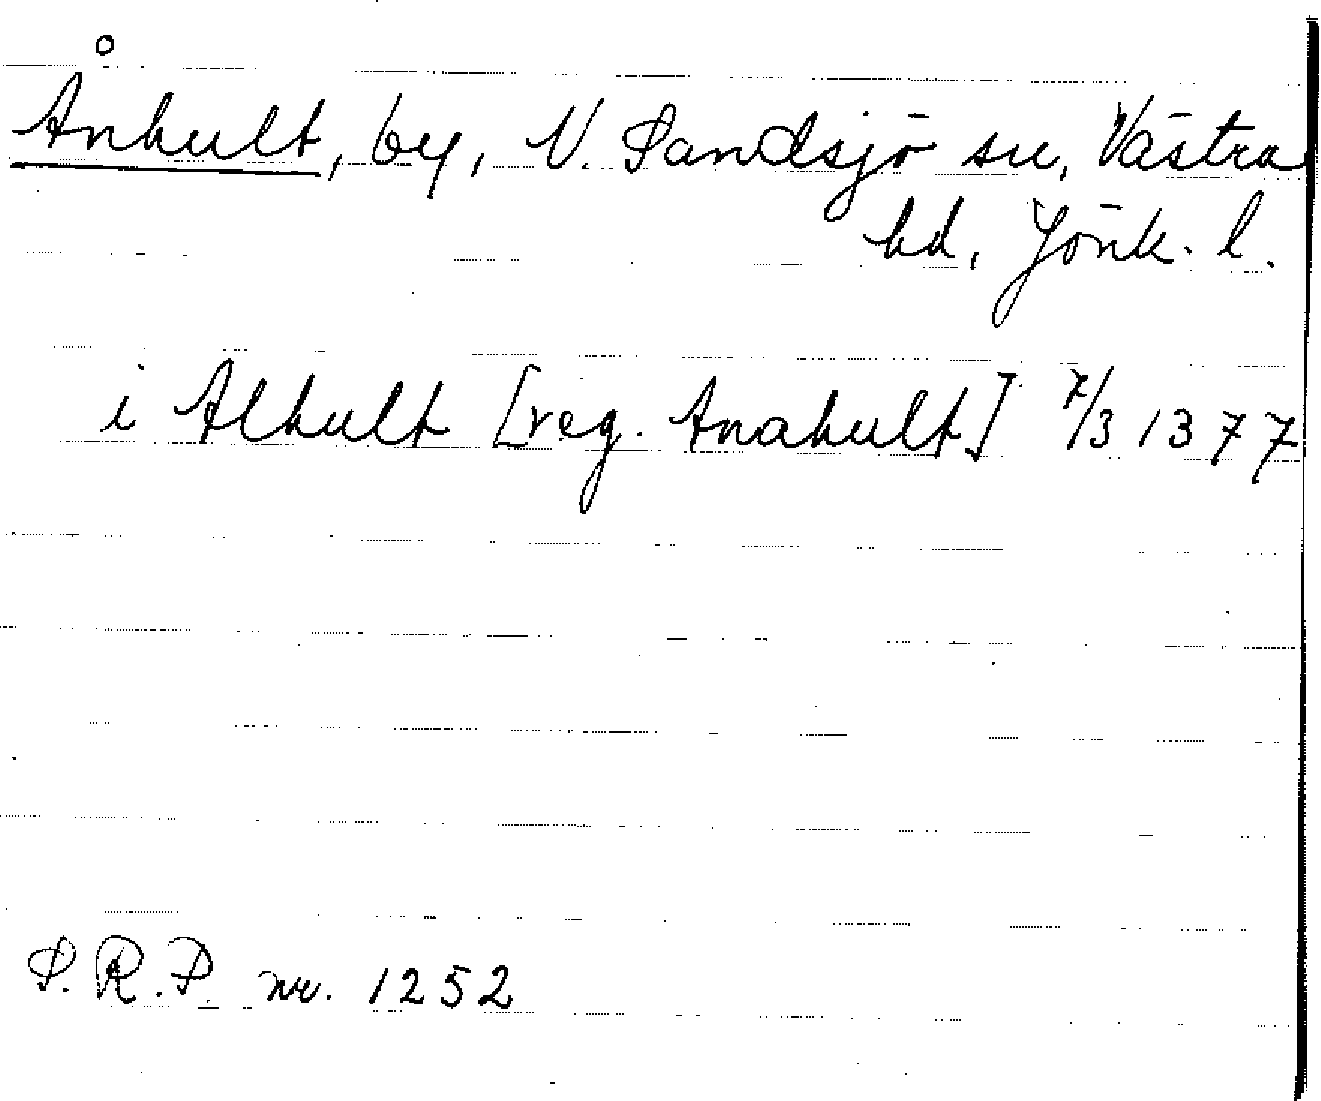 Ånhult, by, N. Sandsjö sn, Västra
hd, Jönk. l.
i Alhult [reg. Anahult] 7/3 1377
S.R.P. nr. 1252